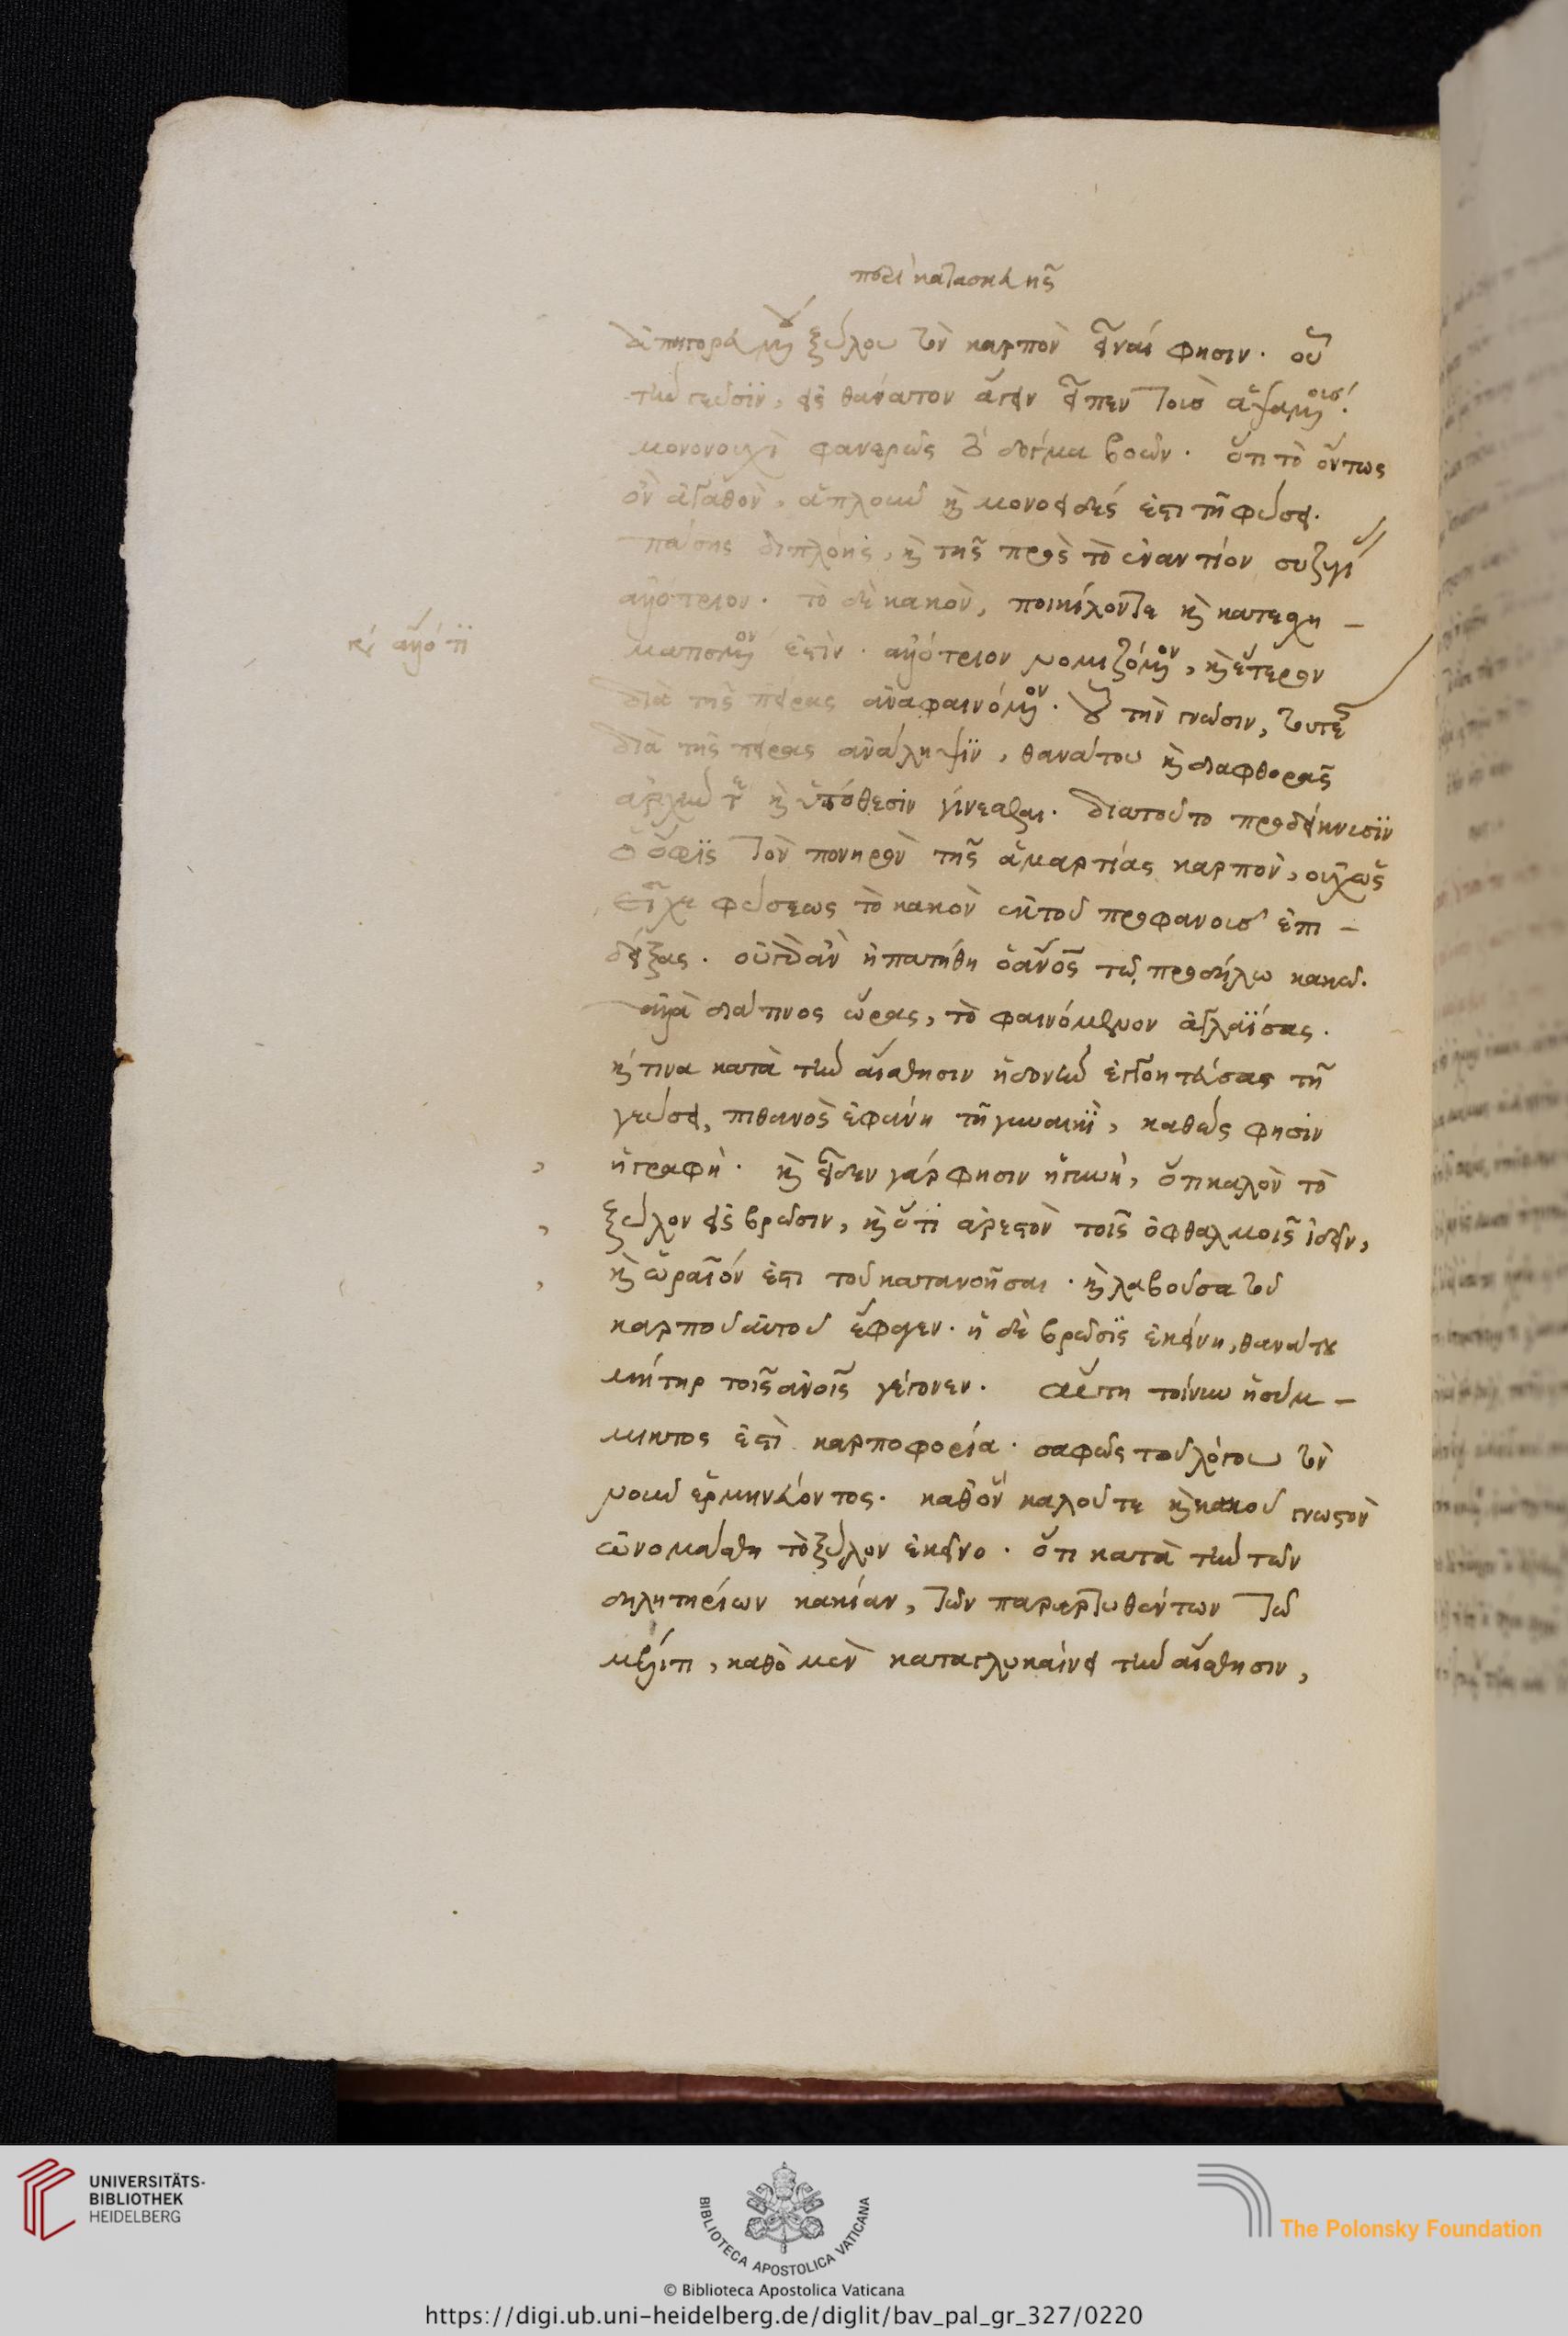 περὶ κατασκευῆς
διηγορευμένου ξύλου τὸν καρπὸν εἶναί φησιν. οὗ
τὴν γεῦσιν, εἰς θάνατον ἄγειν εἶπεν τοῖς ἁψαμένοις.
μονονουχὶ φανερῶς τὸ δόγμα βοῶν. ὅτι τὸ ὄντως
ὂν ἀγαθὸν, ἁπλοῦν καὶ μονοειδές ἐστι τῇ φύσει.
πάσης διπλόης, καὶ τῆς πρὸς τὸ ἐναντίον συζυγίας
ἀλλότριον. τὸ δὲ κακὸν, ποικίλον τε καὶ κατεσχη-
ματισμένον ἐστίν. ἀλλότριον νομιζόμενον, καὶ ἕτερον
διὰ τῆς πείρας ἀναφαινόμενον. οὗ τὴν γνῶσιν, τουτέστι
διὰ τῆς πείρας ἀνάληψιν, θανάτου καὶ διαφθορᾶς
ἀρχήν τε καὶ ὑπόθεσιν γίνεσθαι. διατοῦτο προδείκνυσιν
ὁ ὄφις τὸν πονηρὸν τῆς ἁμαρτίας καρπὸν, οὐχ ὡς
εἶχε φύσεως τὸ κακὸν ἐκ τοῦ προφανοῦς ἐπι-
δείξας. οὐ γὰρ ἂν ἠπατήθη ὁ ἄνος τῷ προδήλῳ κακῷ.
ἀλλὰ διά τινος ὥρας, τὸ φαινόμενον ἀγλαΐσας.
καί τινα κατὰ τὴν αἴσθησιν ἡδονὴν ἐγγοητεύσας τῇ
γεύσει, πιθανὸς ἐφάνη τῇ γυναικὶ, καθώς φησιν
ἡ γραφή. καὶ εἶδεν γάρ φησιν ἡ γυνὴ, ὅτι καλὸν τὸ
ξύλον εἰς βρῶσιν, καὶ ὅτι ἀρεστὸν τοῖς ὀφθαλμοῖς ἰδεῖν,
καὶ ὡραῖόν ἐστι τοῦ κατανοῆσαι. καὶ λαβοῦσα τοῦ
καρποῦ αὐτοῦ ἔφαγεν. ἡ δὲ βρῶσις ἐκείνη, θανάτου
μήτηρ τοῖς ἀνοις γέγονεν. αὕτη τοίνυν ἡ σύμ-
μικτος ἐστὶ καρποφορία. σαφῶς τοῦ λόγου τὸν
νοῦν ἑρμηνεύοντος. καθ' ὃν καλοῦ τε καὶ κακοῦ γνωστὸν
ὠνομάσθη τὸ ξύλον ἐκεῖνο. ὅτι κατὰ τὴν τῶν
δηλητηρίων κακίαν, τῶν παραρτυθέντων τῷ
μέλιτι, καθὸ μὲν καταγλυκαίνει τὴν αἴσθησιν,
UNIVERSITÄTS-
BIBLIOTHEK
HEIDELBERG
BIBLIOTECA APOSTOLICA VATICANA
The Polonsky Foundation
© Biblioteca Apostolica Vaticana
https://digi.ub.uni-heidelberg.de/diglit/bav_pal_gr_327/0220